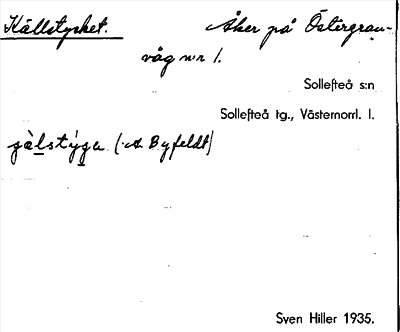 Källstycket. Åker på Östergran-
våg n:r 1.
Sollefteå s:n
Sollefteå tg., Västernorrl. l.
(A. Byfeldt)
Sven Hiller 1935.